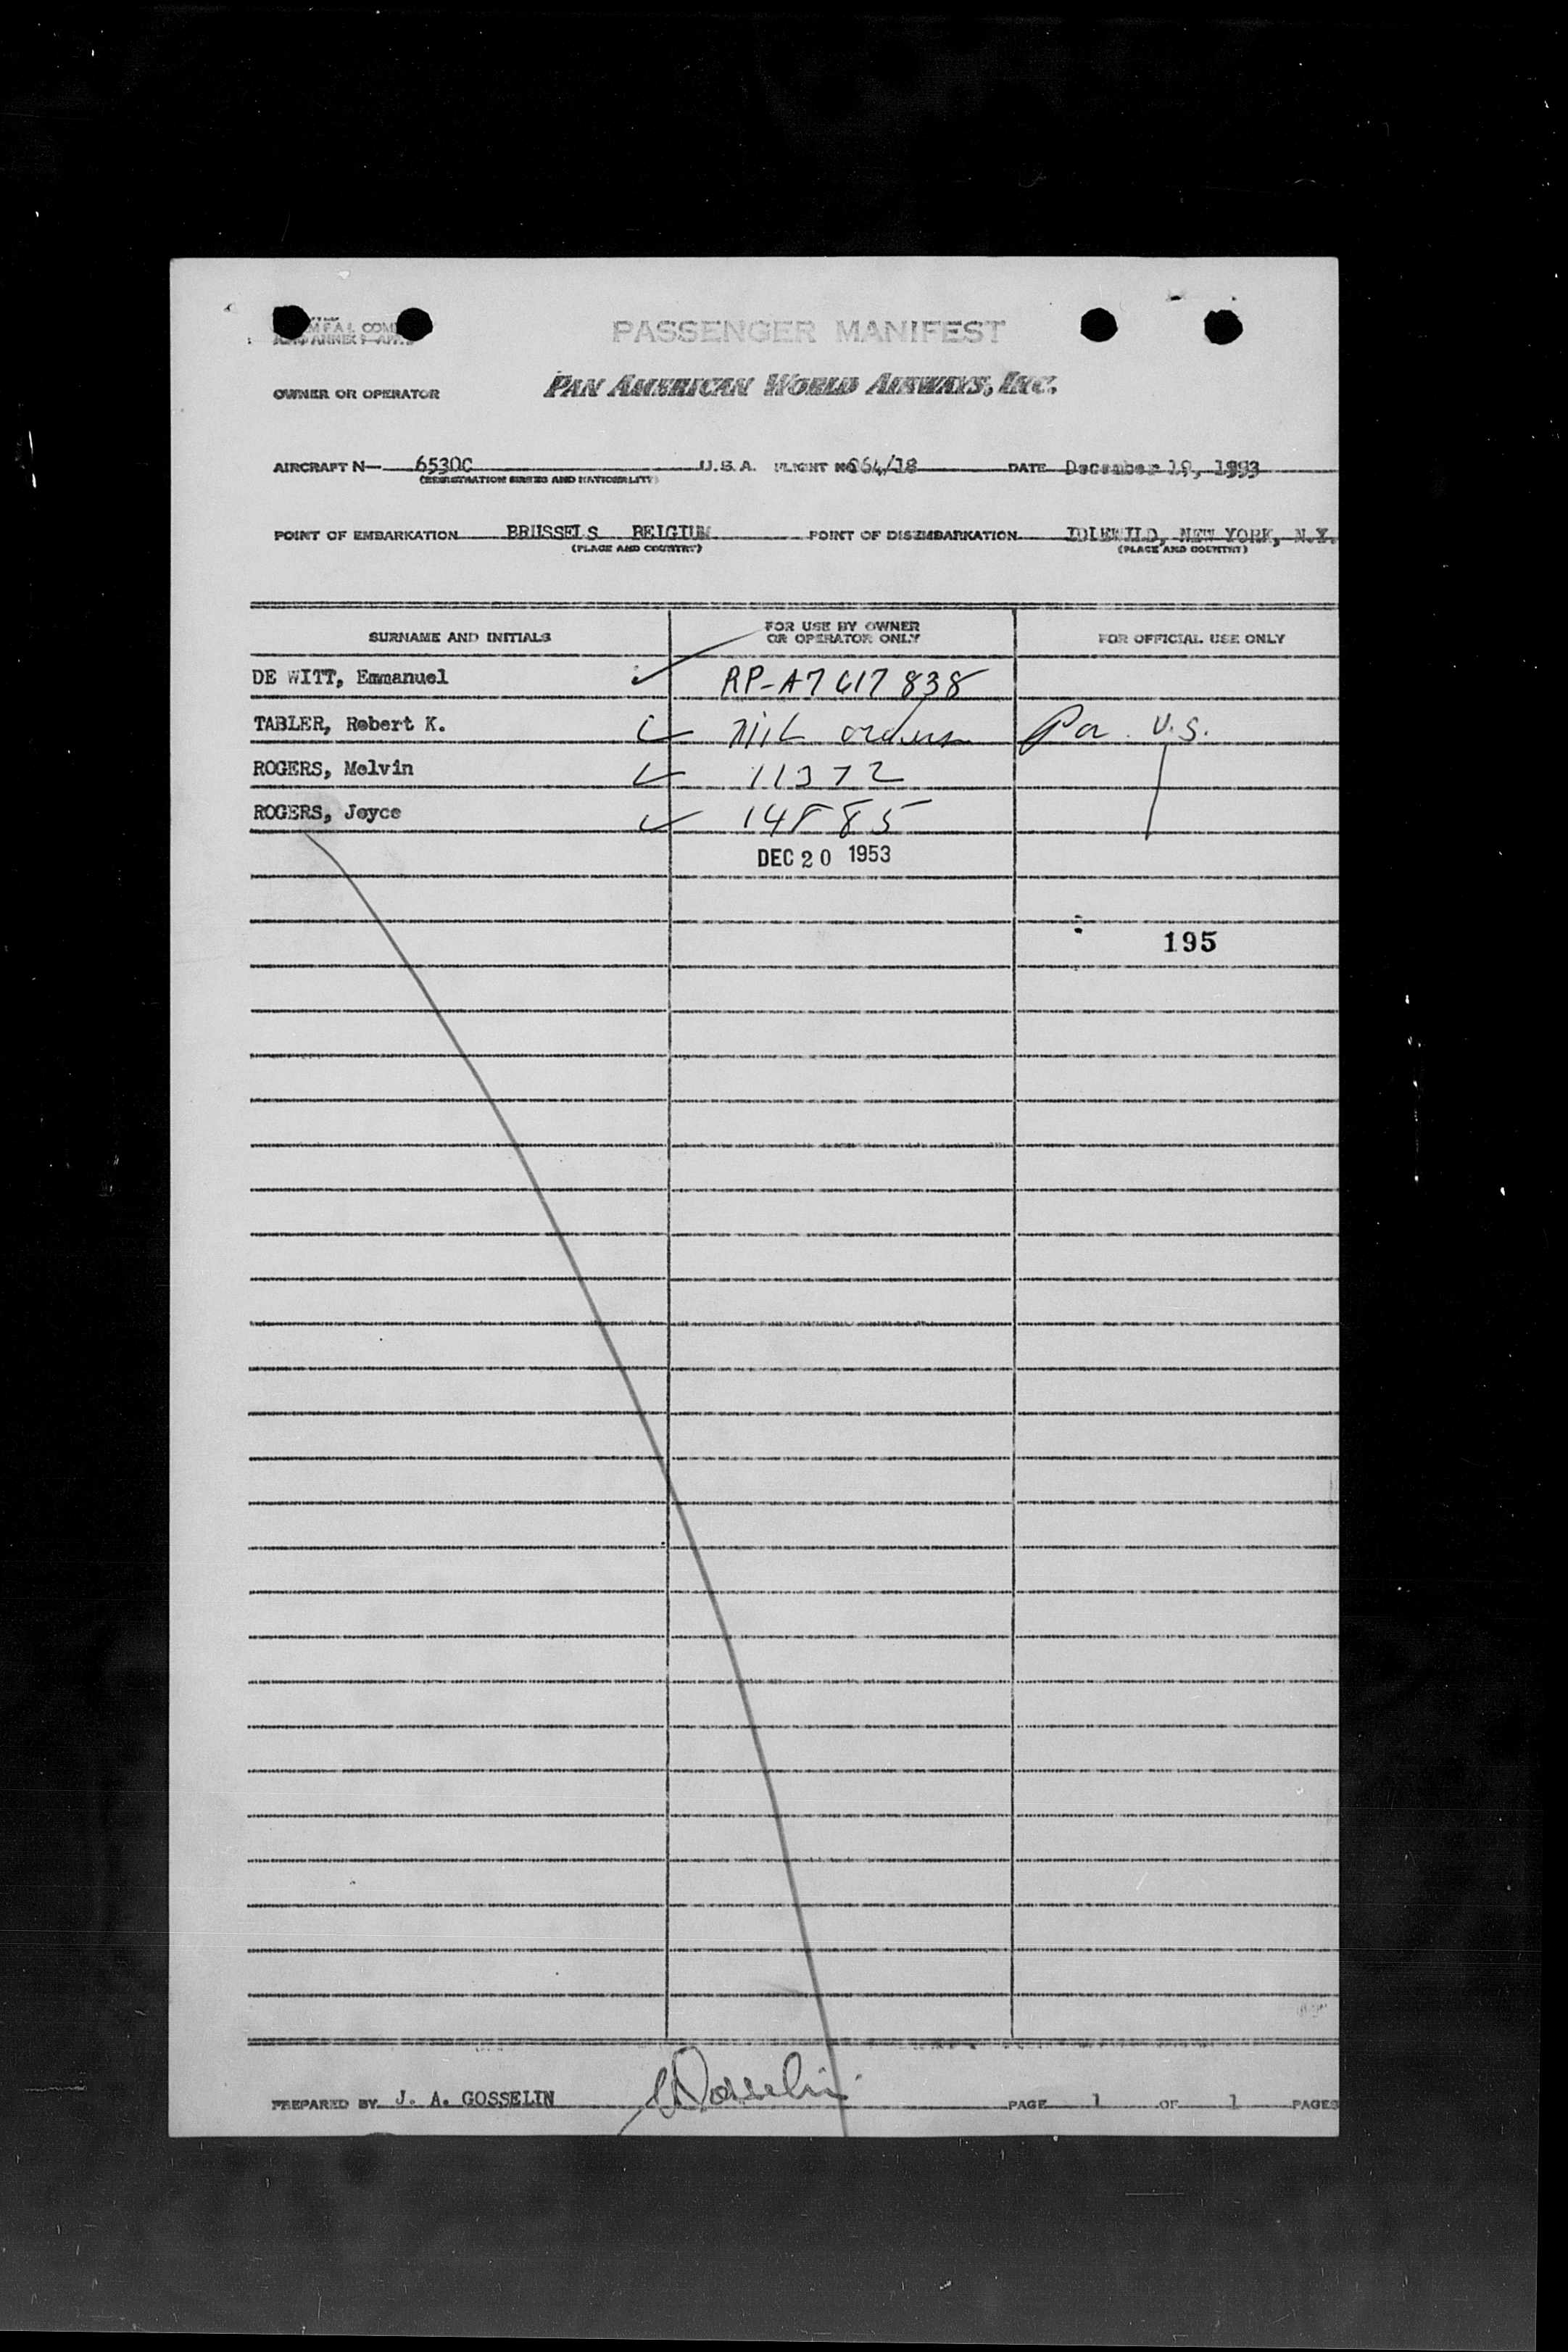 PASSENGER MANIFEST
OWNER OR OPERATOR PAN AMERICAN WORLD AIRWAYS, INC.
AIRCRAFT N— 6530C U.S.A. FLIGHT No 064/18 DATE December 19, 1993
(REGISTRATION MARKS AND NATIONALITY)
POINT OF EMBARKATION BRUSSELS BELGIUM POINT OF DISEMBARKATION IDLEWILD, NEW YORK, N.Y.
(PLACE AND COUNTRY) (PLACE AND COUNTRY)
SURNAME AND INITIALS FOR USE BY OWNER OR OPERATOR ONLY FOR OFFICIAL USE ONLY
DE WITT, Emmanuel RP-A7617838
TABLER, Robert K. Mil orders U.S.
ROGERS, Melvin 11372
ROGERS, Joyce 14885
DEC 20 1953
195
PREPARED BY J. A. GOSSELIN Gosselin PAGE 1 OF 1 PAGES